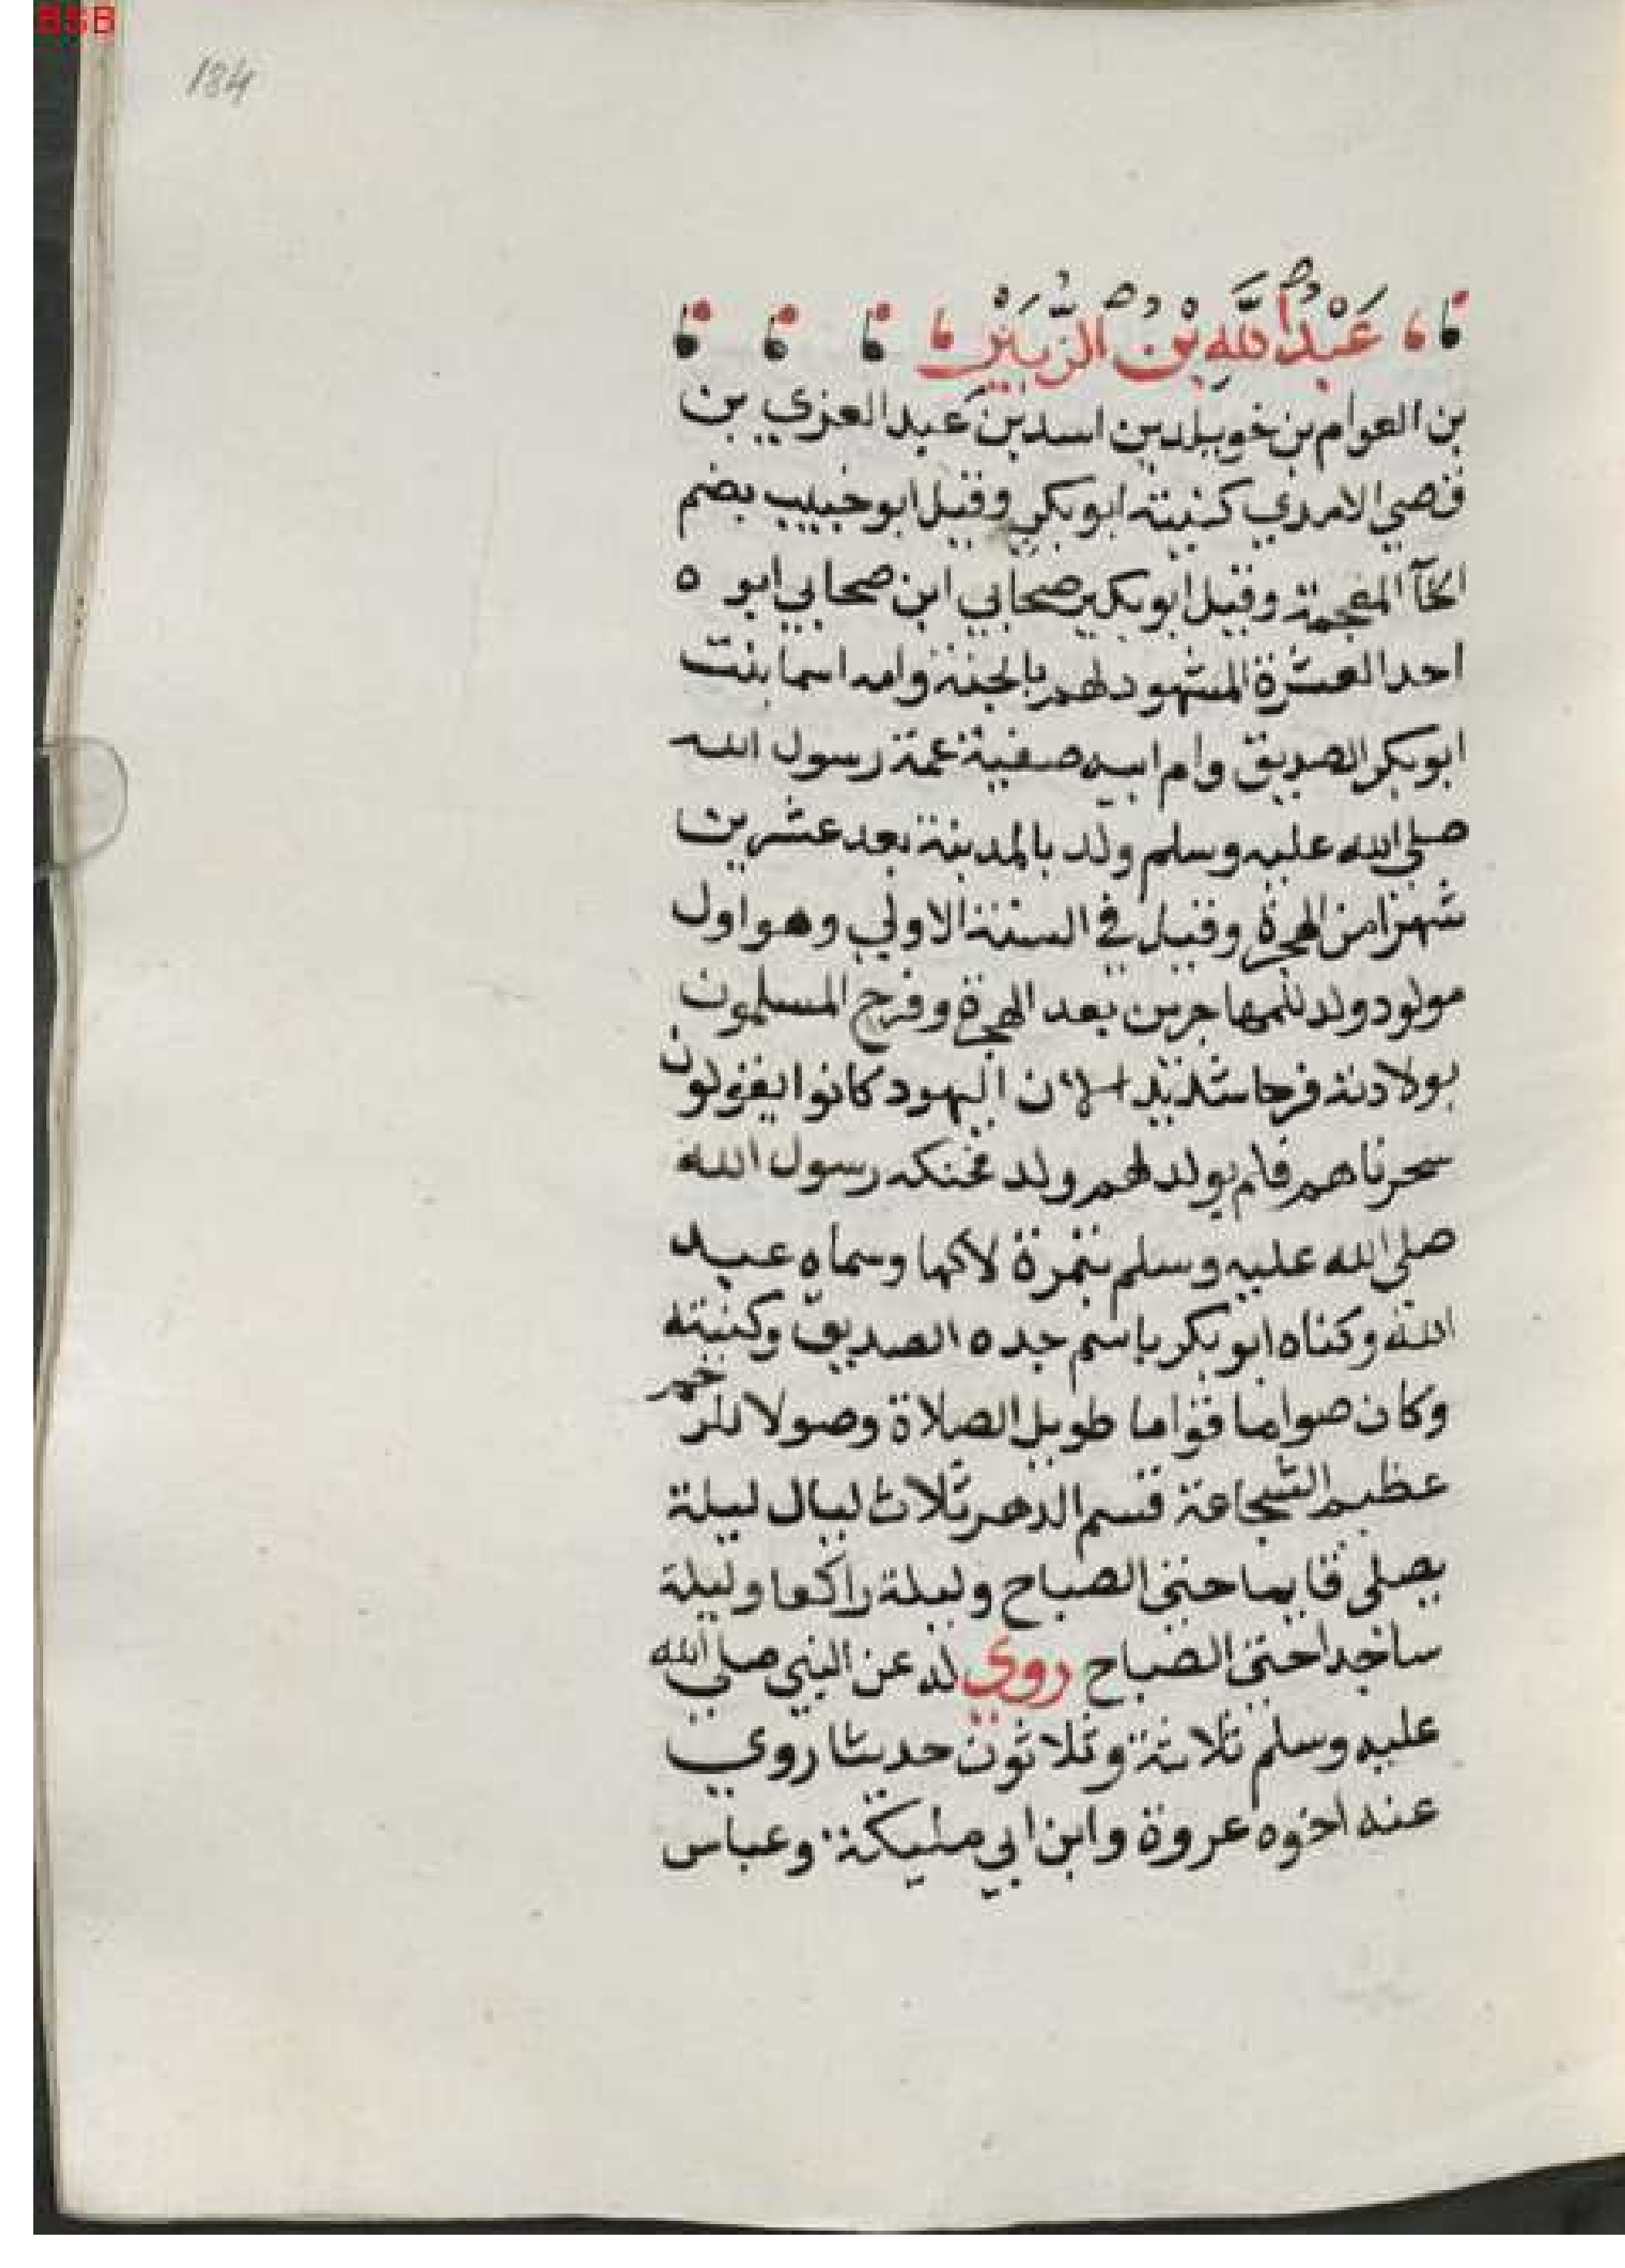 BSB
184
عَبْدُ اللَّهِ بْنُ الزُّبَيْرِ
بن العوام بن خويلد بن اسد بن عبد العزي بن
قصي الاسدي كنيته ابو بكر وقيل ابو خبيب بضم
الخآ المعجمة وقيل ابو بكير صحابي ابن صحابي ابوه
احد العشرة المشهود لهم بالجنة وامه اسما بنت
ابو بكر الصديق وام ابيه صفية عمة رسول الله
صلي الله عليه وسلم ولد بالمدينة بعد عشرين
شهرا من الهجرة وقيل في السنة الاولي وهو اول
مولود ولد للمهاجرين بعد الهجرة وفرح المسلمون
بولادته فرحا شديدا لان اليهود كانوا يقولون
سحرناهم فلم يولد لهم ولد فحنكه رسول الله
صلي الله عليه وسلم بتمرة لاكها وسماه عبد
الله وكناه ابو بكر باسم جده الصديق وكنيته
وكان صواما قواما طويل الصلاة وصولا للرحم
عظيم الشجاعة قسم الدهر ثلاث ليال ليلة
يصلي قايما حتي الصباح وليلة راكعا وليلة
ساجدا حتي الصباح روي له عن النبي صلي الله
عليه وسلم ثلاثة وثلاثون حديثا روي
عنه اخوه عروة وابن ابي مليكة وعباس